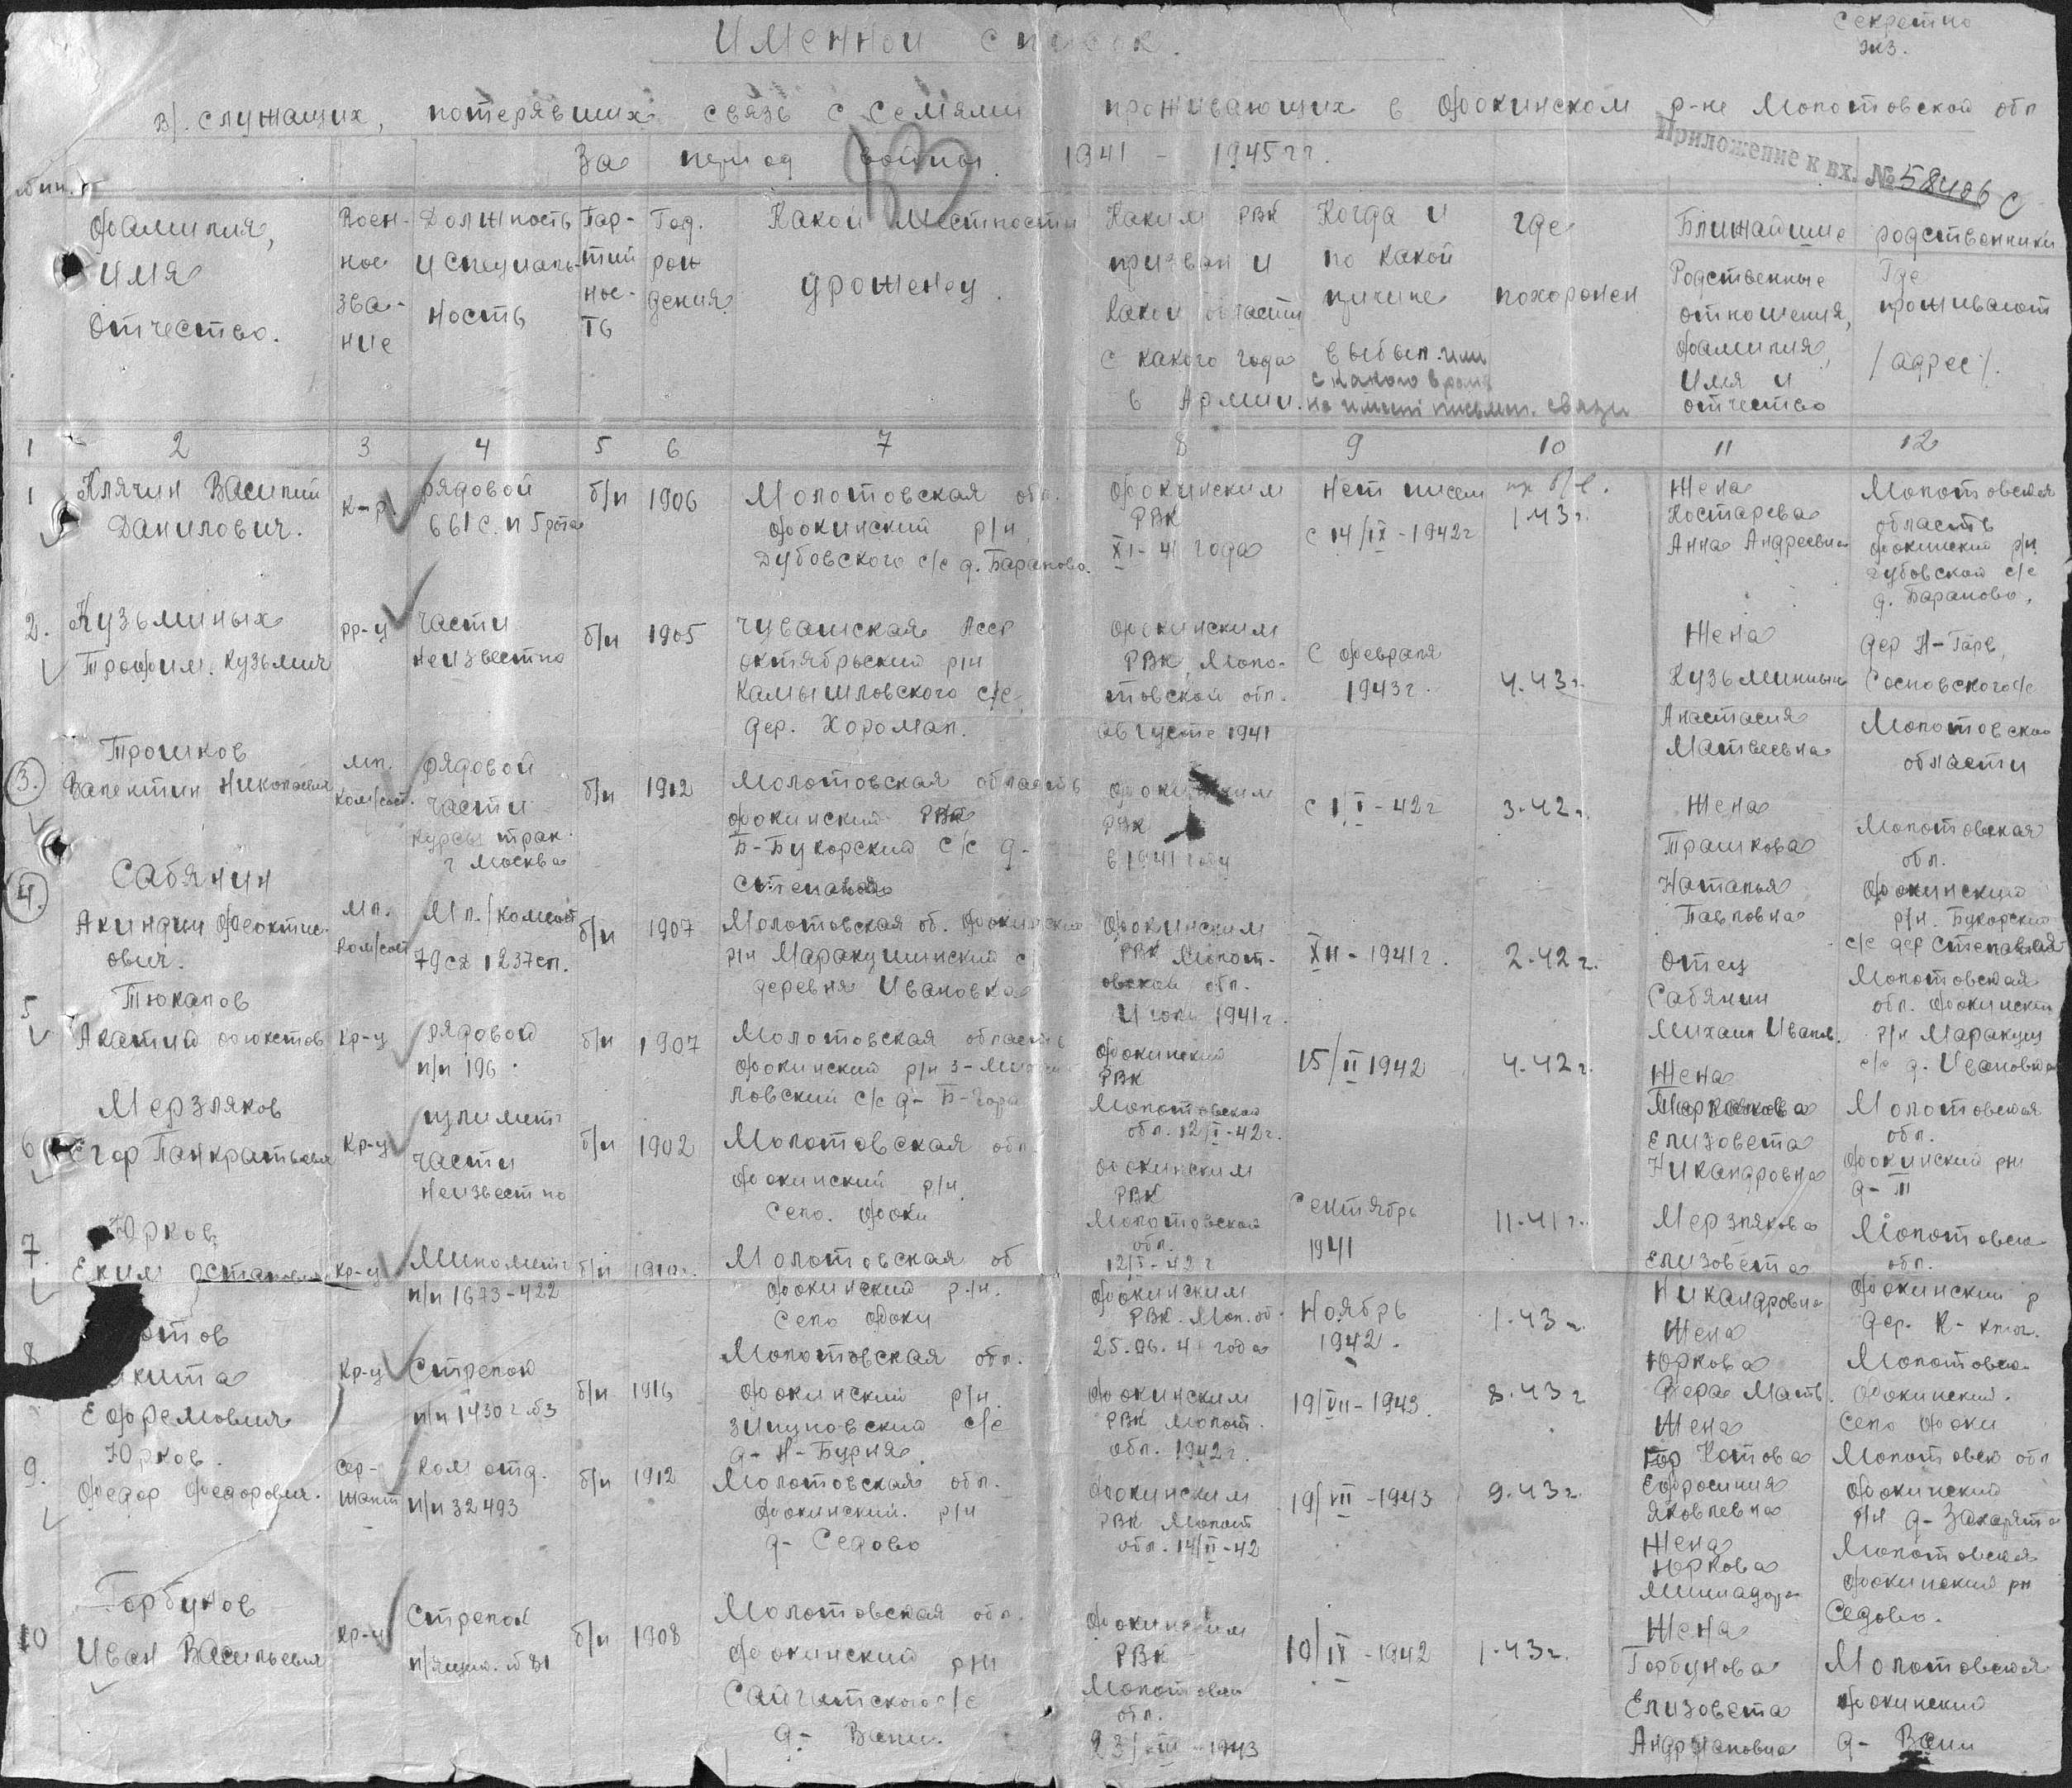 Секретно
экз.
Именной список.
в/служащих, потерявших связь с семьями проживающих в Фокинском р-не Молотовской обл
за период войны 1941 - 1945 гг.
Приложение к вх. № 58486 с
Фамилия, имя отчество.
Воен-ное зва-ние
Должность и специаль-ность
Пар-тий-нос-ть
Год. рож дения
Какой местности уроженец.
Каким РВК призван и какой области с какого года в Армии.
Когда и по какой причине выбыл или с какого время не имеет письмен. связи
где похоронен
Ближайшие родственники
Родственные отношения, фамилия, имя и отчество
Где проживают /адрес/.
1 2 3 4 5 6 7 8 9 10 11 12
1 Клячин Василий Данилович.
к-р
рядовой 661 с.п 5 рота
б/п
1906
Молотовская обл. Фокинский р/н Дубовского с/с д. Бараново.
Фокинским РВК XI-41 года
Нет писем с 14/IX-1942г
пр. б/в. 1.43г.
Жена Костарева Анна Андреевна
Молотовская область Фокинский р/н Дубовской с/с д. Бараново.
2. Кузьминых Трофим. Кузьмич
рр-ц
части неизвестно
б/п
1905
Чувашская Асср октябрьский р/н Камышловского с/с дер. Хоромал.
Фокинским РВК Моло-товской обл. августе 1941
С февраля 1943г.
4.43г.
Жена Кузьминных Анастасия Матвеевна
дер Н-Гарь, Сосновского с/с Молотовская области
3. Трошков Валентин Николаевич
мл. ком/сост.
рядовой части курсы трак. г Москва
б/п
1912
Молотовская область Фокинский РВК Б-Букорский с/с д- Степаново
Фокинским РВК в 1941 году
с 1/I-42г
3.42г.
Жена Трашкова Наталья Павловна
Молотовская обл. Фокинский р/н. Букорский с/с дер Степаново
4. Сабянин Акиндин Феоктис-ович.
мл. ком/сост
мл./комсост 79сд 1237сп.
б/п
1907
Молотовская об. Фокинский р/н Маракушинский с деревня Ивановка
Фокинским РВК Молот-овской обл. Июль 1941г.
XII-1941г.
2.42г.
отец Сабянин Михаил Иванов.
Молотовская обл. Фокинский р/н Маракуш с/с д. Ивановка
5 Тюкалов
кр-ц
рядовой п/п 196
б/п
1907
Молотовская область Фокинский р/н З-Михай ловский с/с д- Б-Гора
Фокинский РВК Молотовской обл. 12/I-42г.
15/II 1942
4.42г.
Жена Елизовета Никандровна
Молотовская обл. Фокинский рн
6 Мерзляков Егор Панкратьевич
кр-ц
части неизвестно
б/п
1902
Молотовская обл. Фокинский р/н. Село. Фоки
Фокинским РВК Молотовской обл. 12/I-42г
Сентябрь 1941
11.41г.
Мерзлякова Елизовета Никандровна
Молотовско- обл. Фокинский р
7. Юрков Еким
кр-ц
Миномет п/п 1673-422
б/п
Молотовская об Фокинский р/н. Село Фоки
Фокинским РВК. Мол. об. 25.06.41 года
Ноябрь 1942.
1.43г.
Жена Юркова Вера Матв.
Молотовско- Фокинский. Село Фоки
8 отов икита Ефремович
кр-ц
Стрелок п/п 1430
б/п
1916
Молотовская обл. Фокинский р/н. Зипуновский с/с д- Н-Бурня
Фокинским РВК Молот. обл. 1942г.
19/VII-1943.
8.43г
Жена Котова Ефросиния Яковлевна
Молотовск обл Фокинский р/н д-Захарята
9. Юрков. Федор Федорович.
Сер-жант
Ком отд. п/п 32493
б/п
1912
Молотовская обл. Фокинский. р/н д- Седово
Фокинским РВК Молот обл. 14/II-42
19/VII-1943
9.43г.
Жена Юркова
Молотовская Фокинский рн Седово.
10 Горбунов Иван Васильевич
кр-ц
Стрелок
б/п
1908
Молотовская обл. Фокинский р/н Сайгатского с/с д- Вани.
Фокинским РВК Молотовск обл. 23/VIII-1943
10/IX-1942
1.43г.
Жена Горбунова Елизовета Андрияновна
Молотовская Фокинский д- Вани